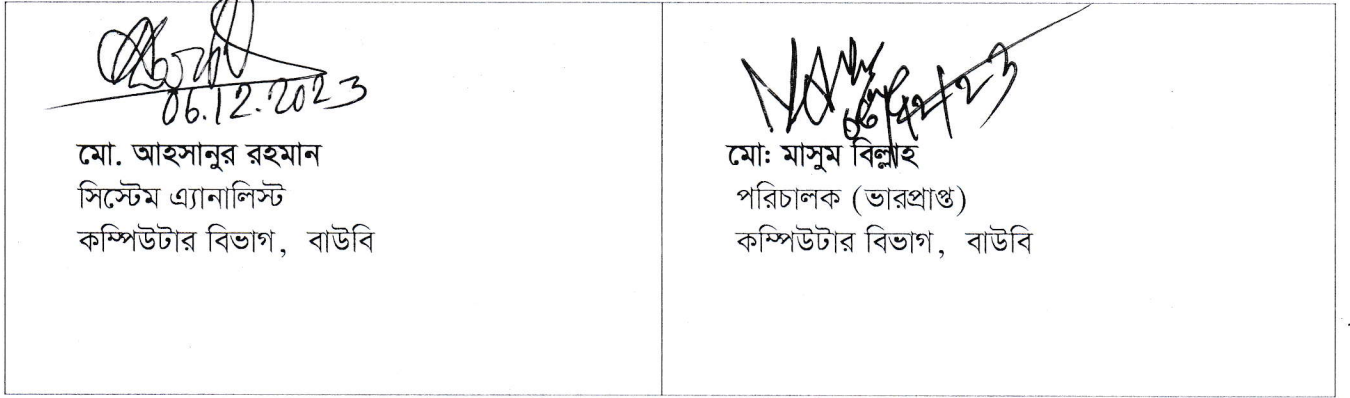 06.12.2023
মো. আহসানুর রহমান
সিস্টেম এ্যানালিস্ট
কম্পিউটার বিভাগ, বাউবি
মো: মাসুম বিল্লাহ
পরিচালক (ভারপ্রাপ্ত)
কম্পিউটার বিভাগ, বাউবি